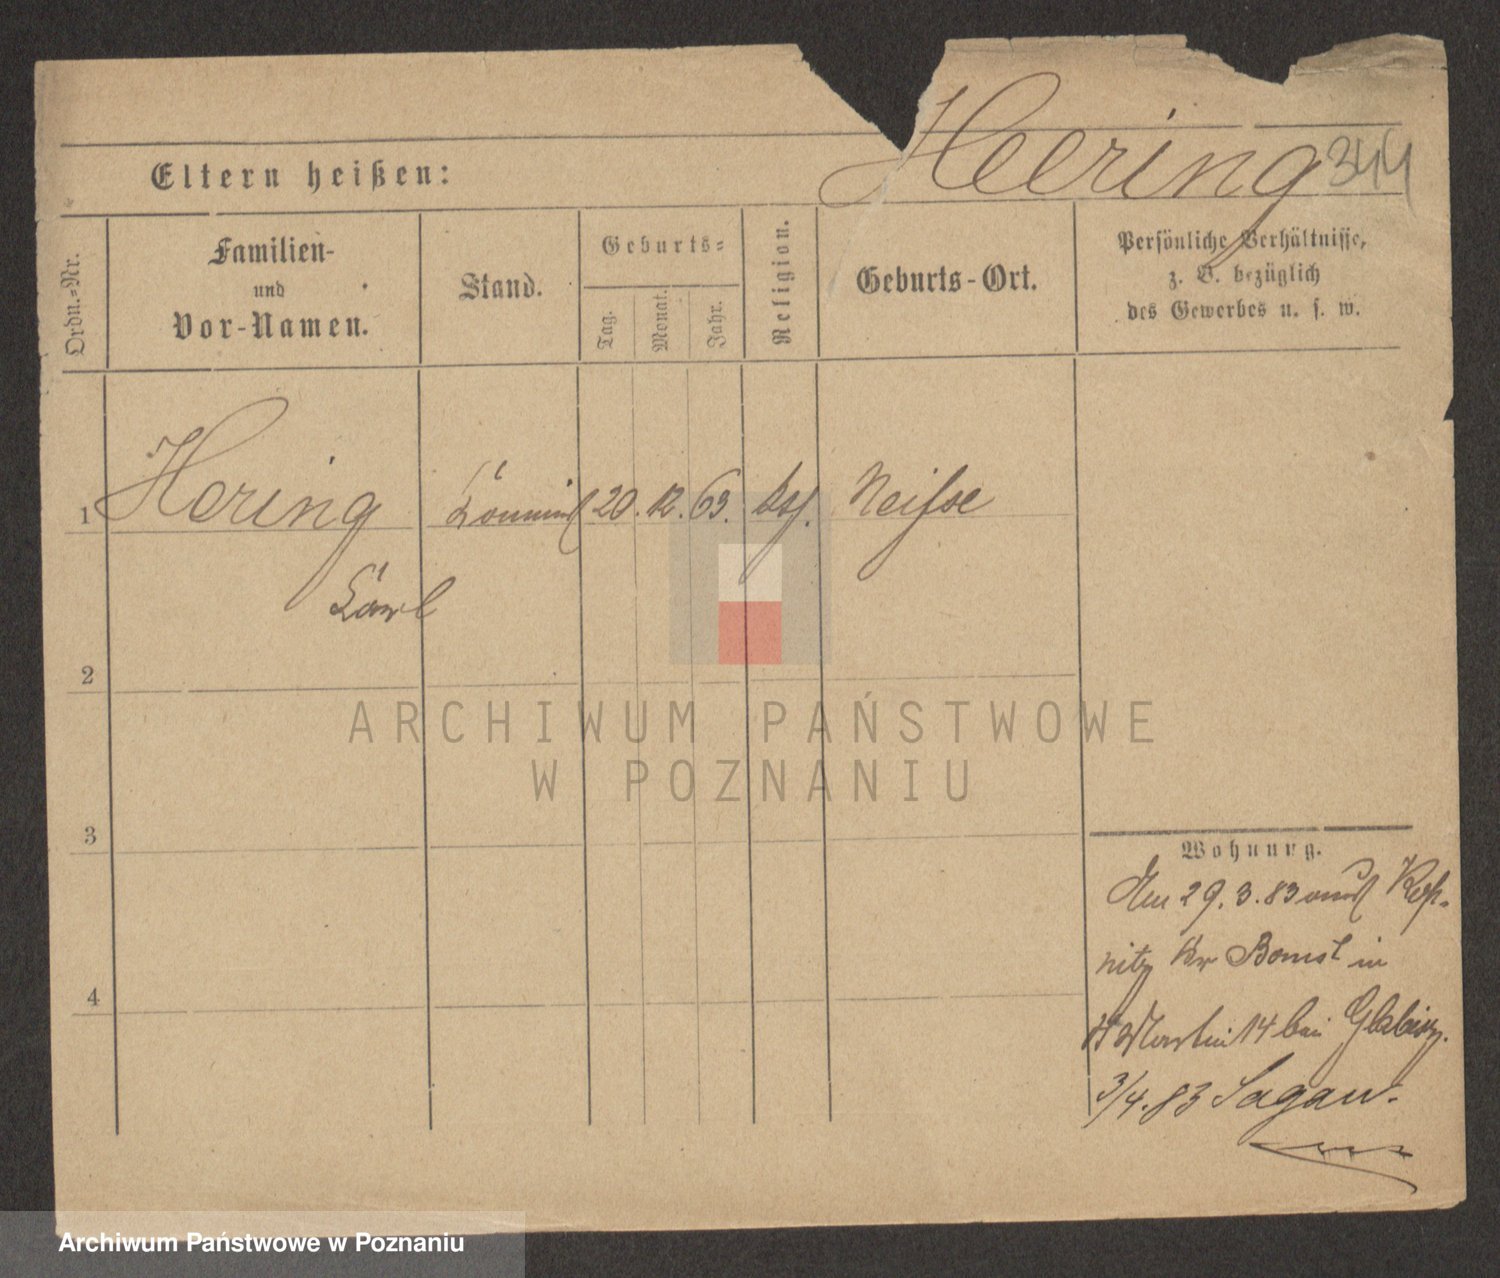 Heering 344
Eltern heißen:
Ordn.-Nr.
Familien-
und
Vor-Namen.
Stand.
Geburts-
Tag.
Monat.
Jahr.
Religion.
Geburts-Ort.
Persönliche Verhältnisse,
z. B. bezüglich
des Gewerbes u. s. w.
1 Hering 20. 12. 63. kath. Neisse
Carl
2
3
4
Wohnung.
Am 29. 3. 83 aus
nitz Kr Bomst in
St Martin 14 bei
3/4. 83 Sagan.
ARCHIWUM PAŃSTWOWE
W POZNANIU
Archiwum Państwowe w Poznaniu